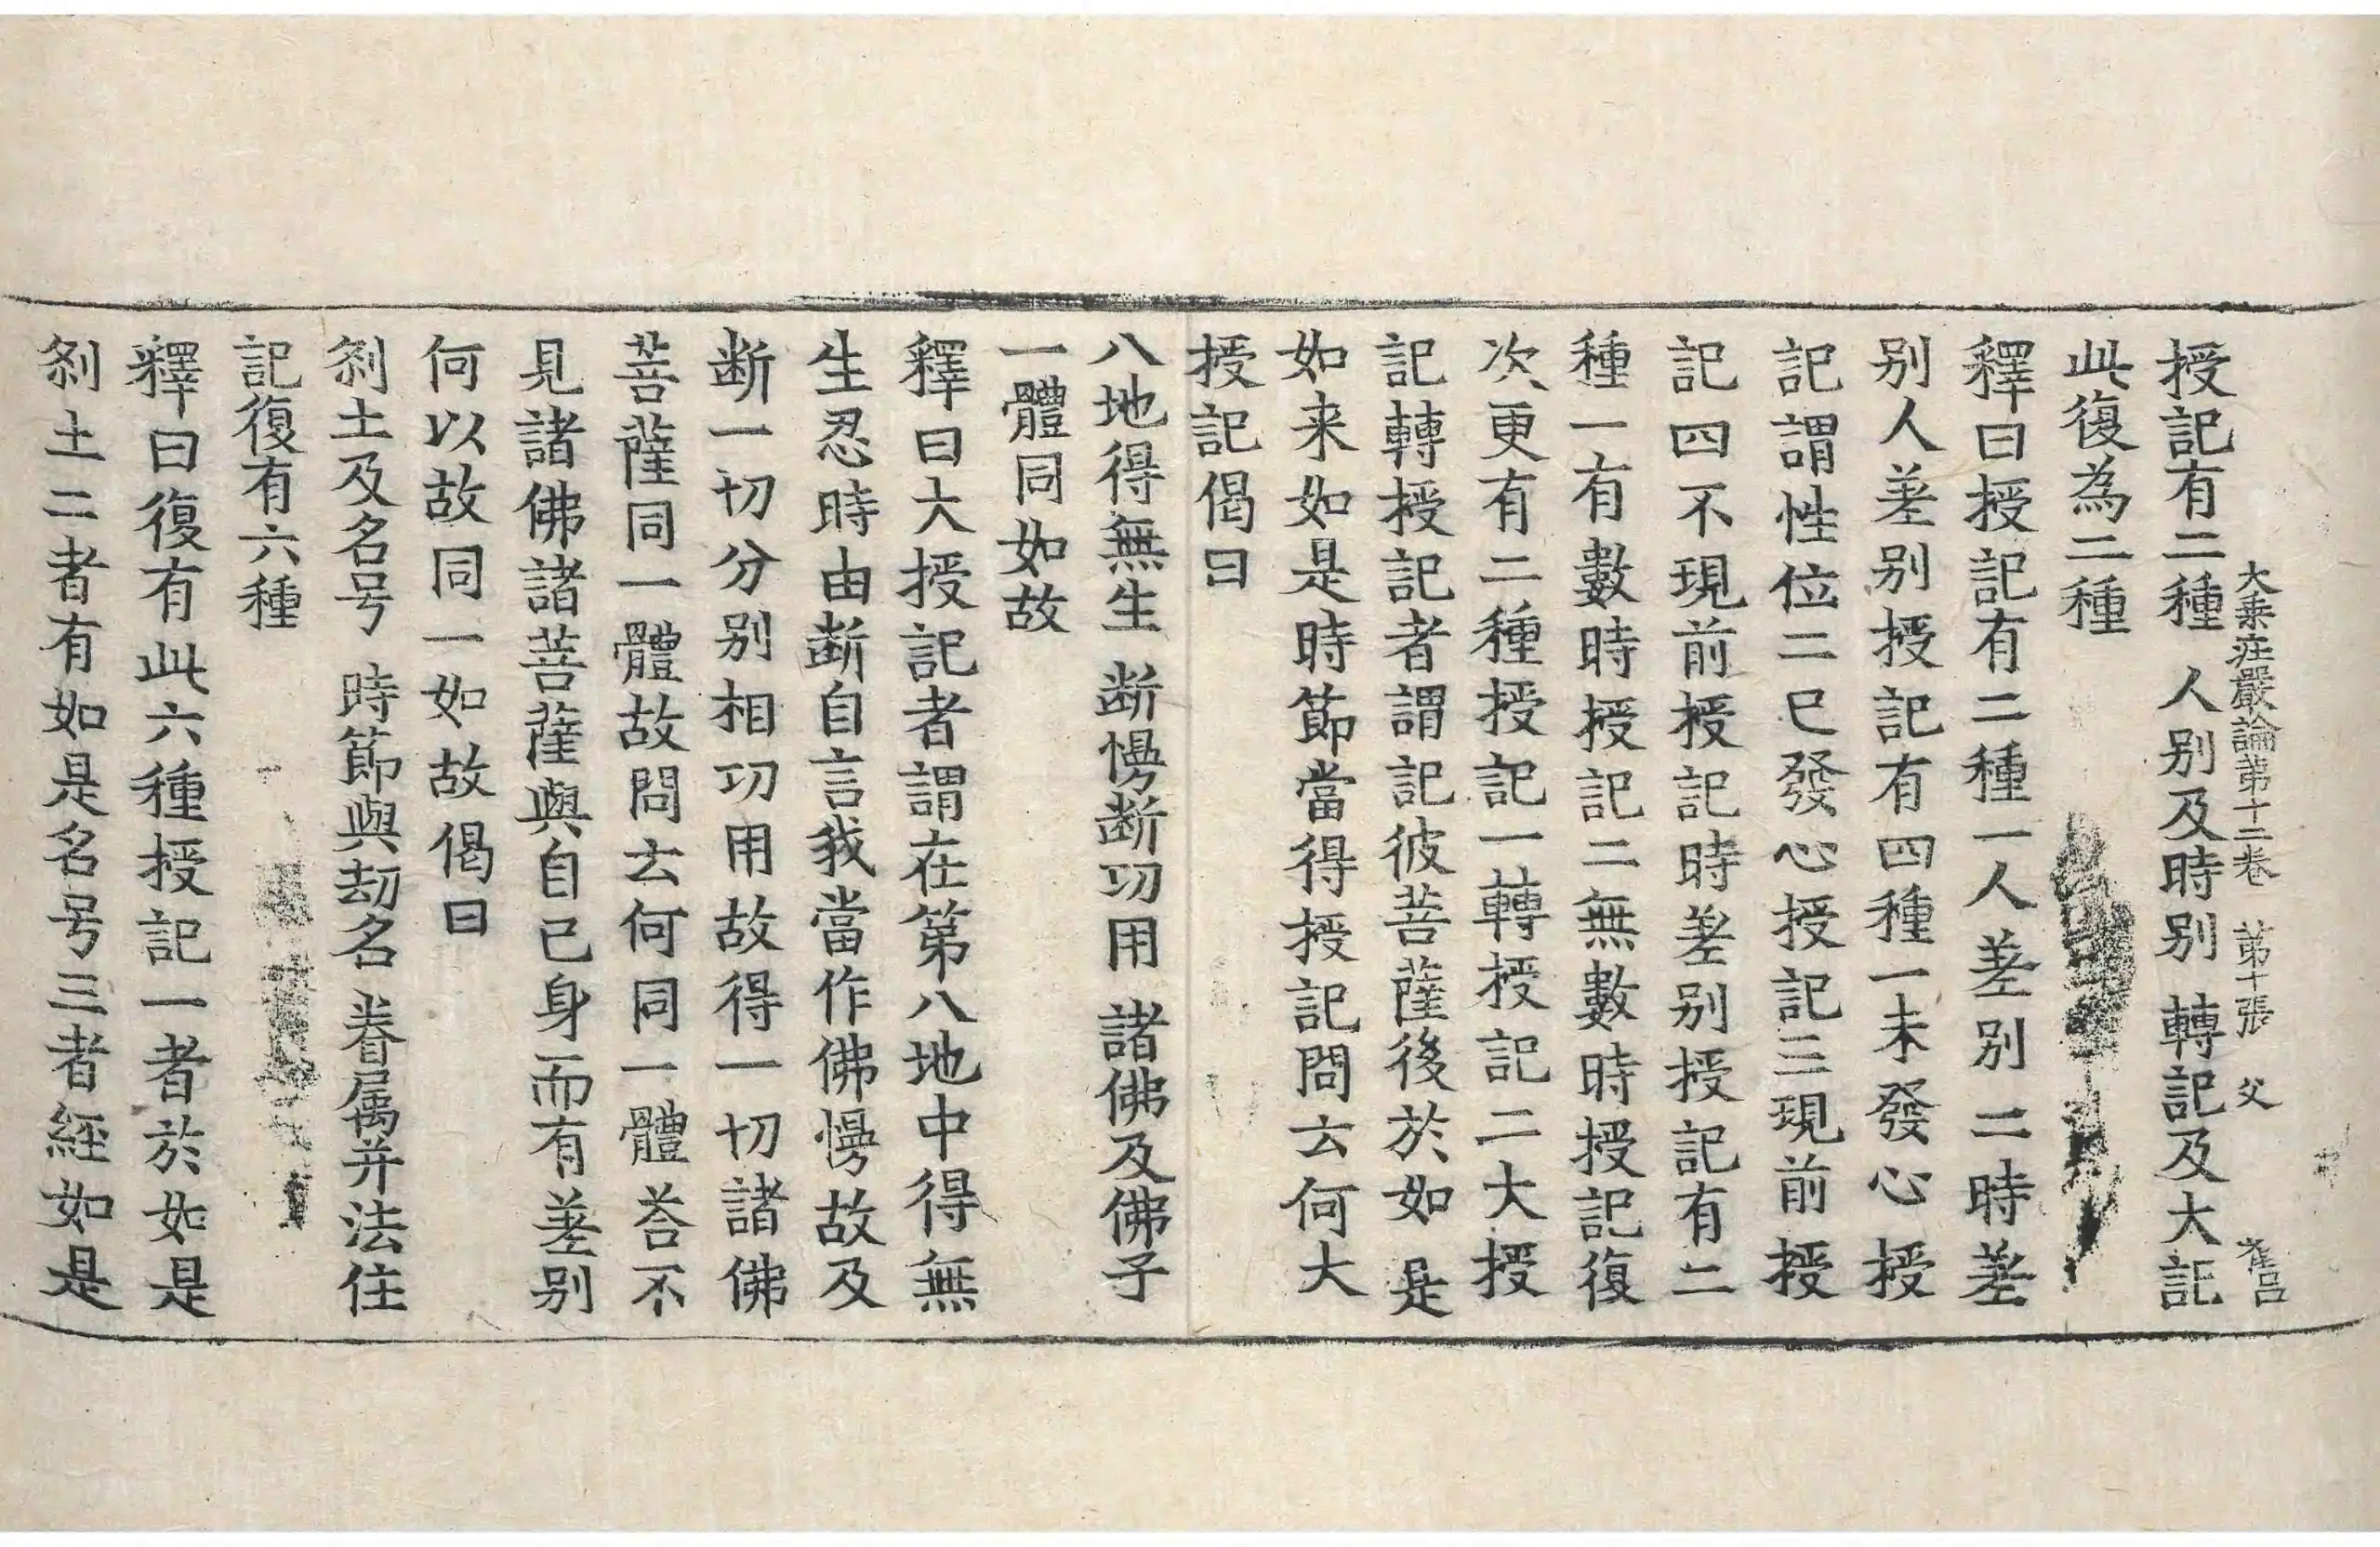 大乗庄嚴論苐十二卷 苐十張 父 崔吕
授記有二種 人别及時别 轉記及大記
此復為二種
釋曰授記有二種一人差别二時差
别人差别授記有四種一未發心授
記謂性位二已發心授記三現前授
記四不現前授記時差别授記有二
種一有數時授記二無數時授記復
次更有二種授記一轉授記二大授
記轉授記者謂記彼菩薩後於如是
如来如是時節當得授記問云何大
授記偈曰
八地得無生 断慢断功用 諸佛及佛子
一體同如故
釋曰大授記者謂在第八地中得無
生忍時由断自言我當作佛慢故及
断一切分别相功用故得一切諸佛
菩薩同一體故問云何同一體荅不
見諸佛諸菩薩與自己身而有差别
何以故同一如故偈曰
刹土及名号 時節與劫名 眷属并法住
記復有六種
釋曰復有此六種授記一者於如是
刹土二者有如是名号三者經如是